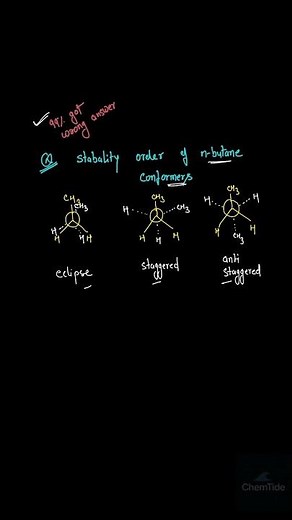 99% got
wrong answer
Q stabality order of n-butane
conformers
CH3
CH3
H
H
H
eclipse
CH3
H
CH3
H
H
H
staggered
CH3
H
H
H
H
CH3
anti
staggered
ChemTide